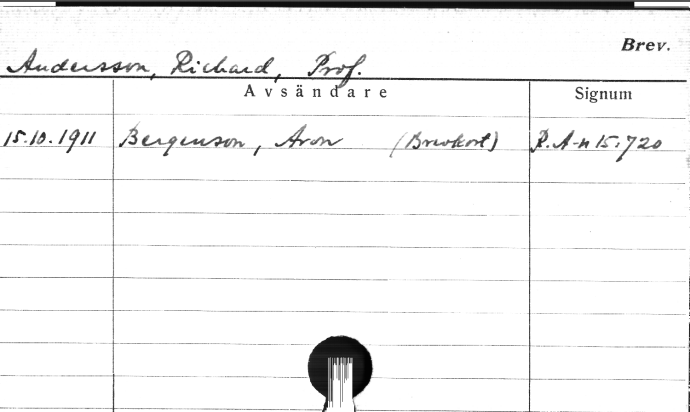 Brev.
Andersson, Richard, Prof.
Avsändare Signum
15.10.1911 Bergenson, Aron (Brevkort) R.A-n 15.720